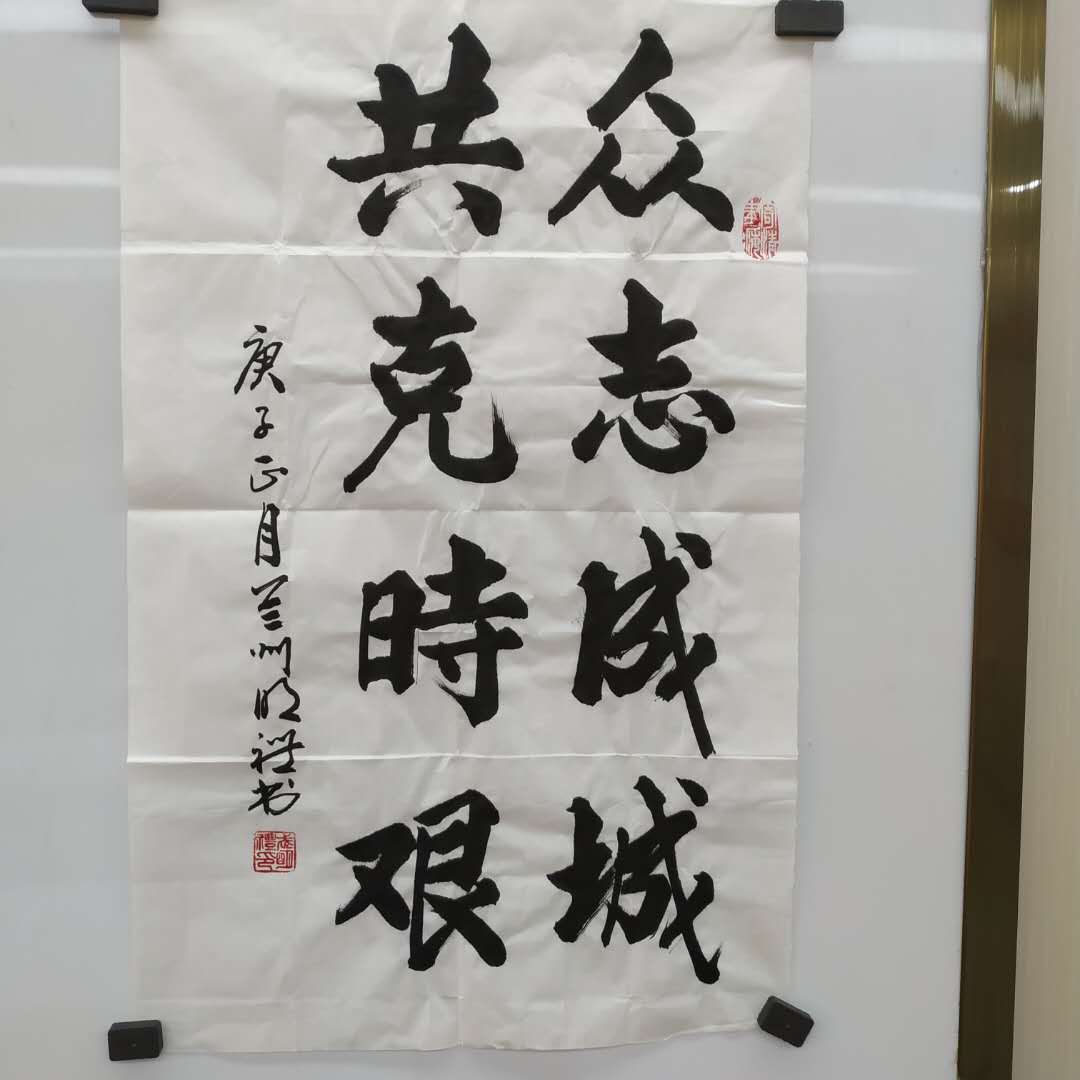 众志成城
共克時艰
庚子正月兰州明礼书